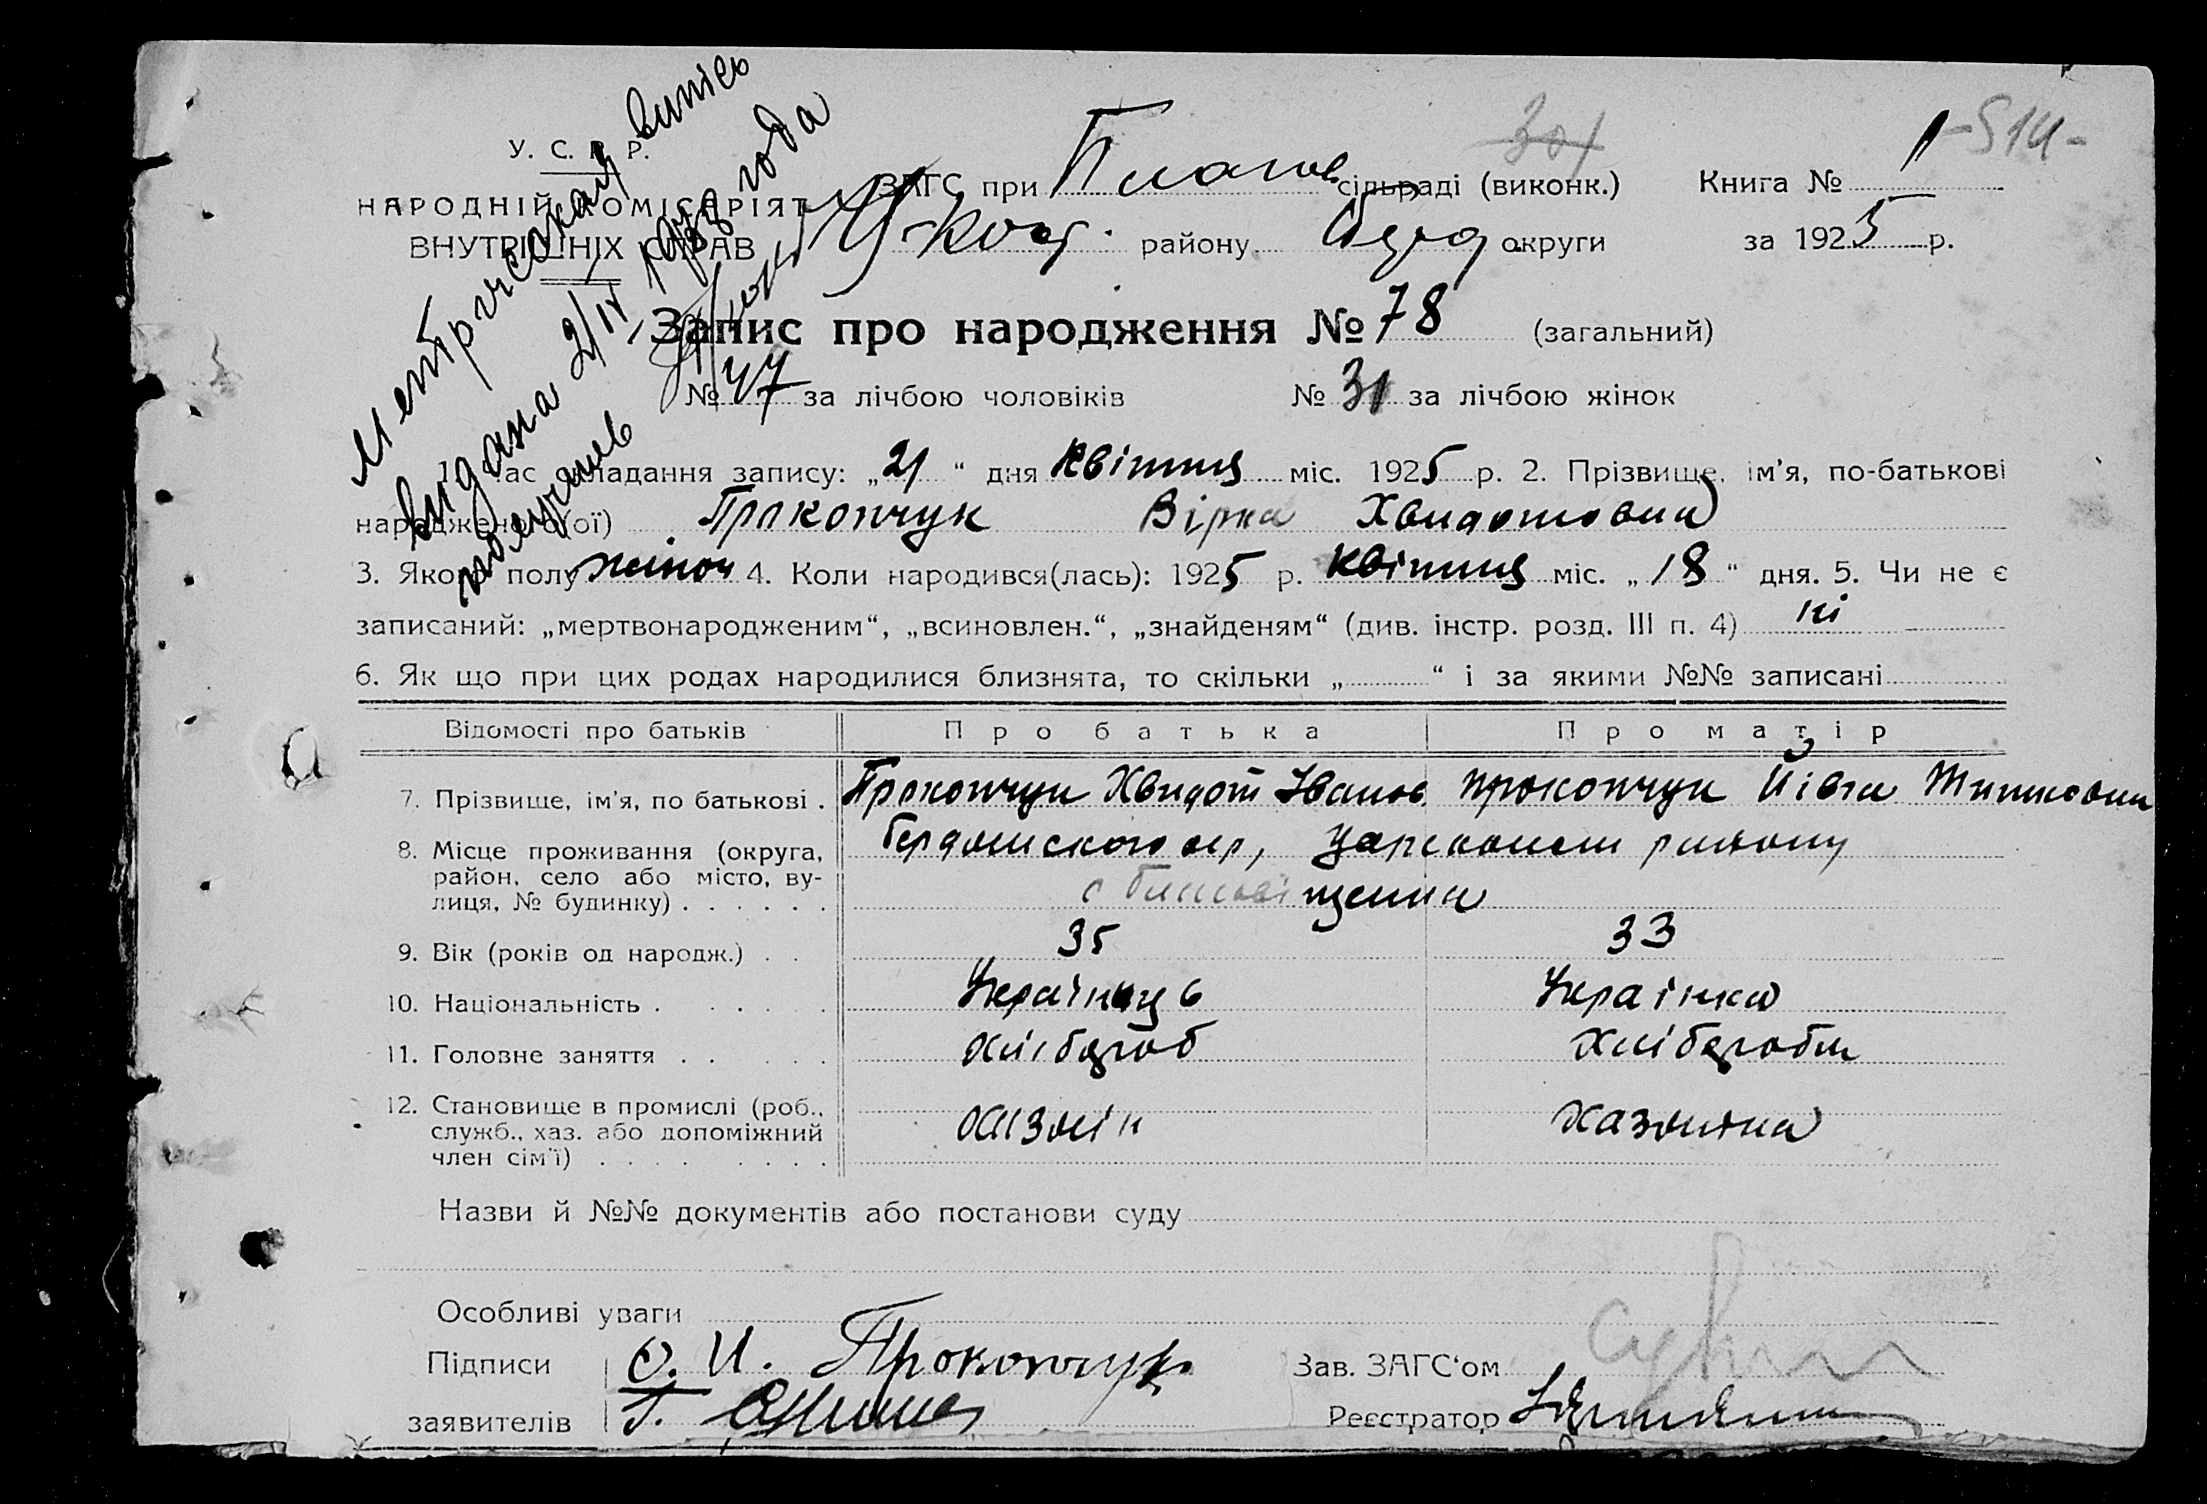 метрическая випісь
видана 2/IV 1938 года
У. С. Р. Р.
НАРОДНІЙ КОМІСАРІЯТ
ВНУТРІШНІХ СПРАВ
301
-514-
ЗАГС при Благов. сільраді (виконк.) Книга № 1
району округи за 1925 р.
Запис про народження № 78 (загальний)
№ 47 за лічбою чоловіків № 31 за лічбою жінок
1. Час складання запису: „21“ дня квітня міс. 1925 р. 2. Прізвище, ім’я, по-батькові
народженого(ої) Прокопчук Вірка Хвидотовна
3. Якого полу жіноч 4. Коли народився(лась): 1925 р. квітня міс. „18“ дня. 5. Чи не є
записаний: „мертвонародженим“, „всиновлен.“, „знайденям“ (див. інстр. розд. III п. 4) ні
6. Як що при цих родах народилися близнята, то скільки „ “ і за якими №№ записані
Відомості про батьків Про батька Про матір
7. Прізвище, ім’я, по батькові . Прокопчук Хвидот Іванов Прокопчук Йівга
8. Місце проживання (округа,
район, село або місто, ву-
лиця, № будинку) . . . . . .
9. Вік (років од народж.) . . 35 33
10. Національність . . . . . . Українць Українка
11. Головне заняття . . . . . хлібороб хлібороби
12. Становище в промислі (роб.,
служб., хаз. або допоміжний
член сім’ї) . . . . . . . . хазяін хазяика
Назви й №№ документів або постанови суду
Особливі уваги
Підписи О. И. Прокопчук Зав. ЗАГС‘ом
заявителів Реєстратор